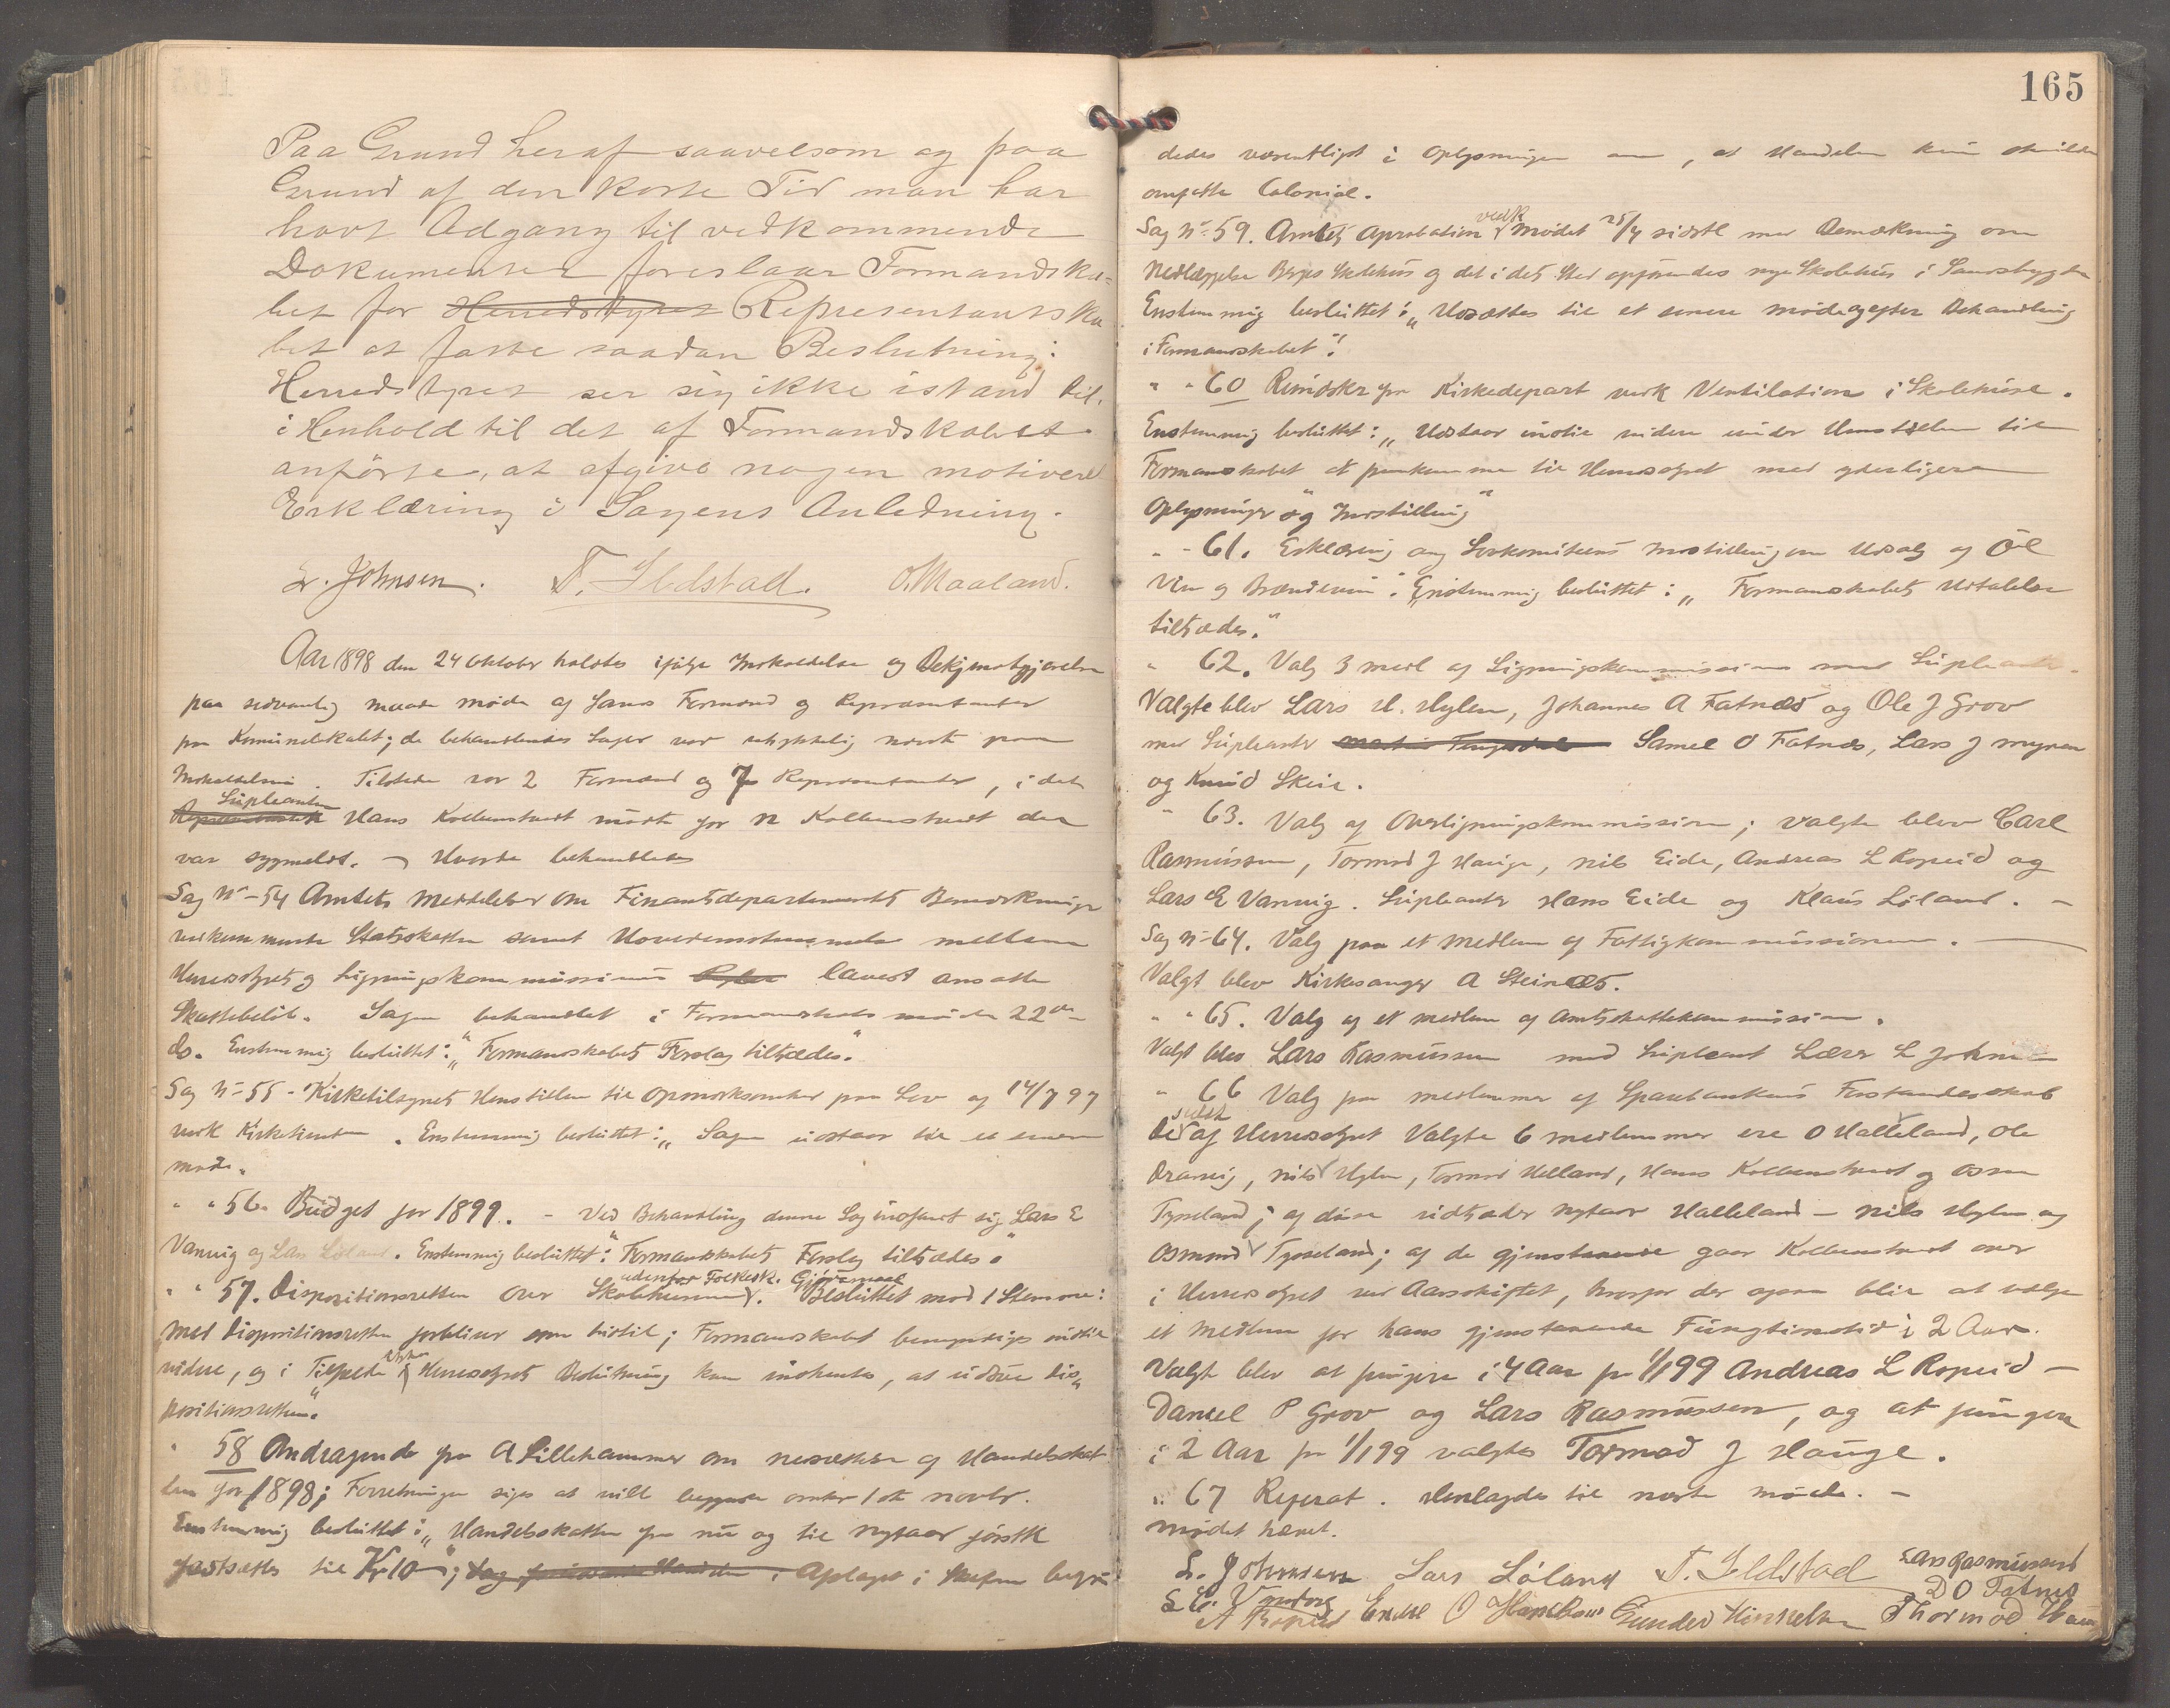 Paa Grund heraf saavelsom og paa
Grund af den korte Tid man har
havt Adgang til vedkommende
Dokumenter foreslaar Formandska-
bet for Herredstyret Representantska
bet at fatte saadan Beslutning:
Herredstyret ser sig ikke istand til,
i Henhold til det af Formandskabet
anførte, at afgive nogen motiveret
Erklæring i Sagens Anledning.
L. Johnsen. T. Ildstad. O. Maaland.
Aar 1898 den 24 Oktober holdtes ifølge Indkaldelse og Bekjendtgjørelse
paa sedvanlig maade møde af Sands Formænd og Repræsentanter
for Komunelokalet; de behandlendes Sager var
Indkaldelsen. Tilstede var 2 Formænd og 7 Repræsentanter, i det
Supleanten
Hans Kolbenstvedt mødte for N Kolbenstvedt der
var sygmeldt. – Hvorda behandledes
Sag No 54 Amtets Meddelelser om Finantsdepartementets Bemærkninger
vedkommende Statsskatten samt Uoverensstemmelse mellem
Herredstyrets og Ligningskommissionens lavest ansatte
Skattebeløb. Sagen behandlet i Formandskabs møde 22de
ds. Enstemmig besluttet: „Formandskabets Forslag tiltrædes."
Sag No 55 - Kirketilsynets Henstillen til Opmærksomhed paa Lov af 14/7 97
vedk Kirke . Enstemmig besluttet: „Sagen udstaar til et senere
møde.
" " 56. Budget for 1899. – Ved Behandling denne Sag indfandt sig Lars E
Vanvig og Lars Løland. Enstemmig besluttet: "Formandskabets Forslag tiltrædes."
udenfor Folkesk. Gjøremaal
" " 57. Dispositionsretten over Skolehusene. Besluttet mod 1 Stemme:
Med Dispositionsretten forbliver som hidtil; Formandskabet bemyndiges indtil
videre, og i Tilfælde Herredstyrets Beslutning kan indhentes, at udøve dis„
positionsretten."
" 58 Andragende fra A Lillehammer om nedsættelse af Handelsskat
ten for 1898; Forretningen siges at ville begynde omkr 1ste novbr.
Enstemmig besluttet: „Handelsskatten fra nu og til nytaar førstk
fastsættes til Kr 10"; Aplaget i Skafen begrun
165
dedes væsentligst i Oplysningen om, at Handelen kun skulde
omfatte Colonial.
vedk
Sag No 59. Amtets Aprobation mødet 25/4 sidstl med Bemærkning om
Nedlæggelse Berges Skolehus og det i dets Sted opførendes nye Skolehus i Sandsbygden
Enstemmig besluttet: „Udsættes til et senere møde efter Behandling
i Formandskabet".
" " 60 Rundskr fra Kirkedepart vedk Ventilation i Skolehuse.
Enstemmig besluttet: „Udstaar indtil videre under Henstillen til
Formandskabet at fremkomme til Herredstyret med yderligere
Oplysninger og Indstilling"
" - 61. Erklæring ang Lovkomiteens Indstilling om Udsalg af Öl
Vin og Brændevin. Enstemmig besluttet: „Formandskabets Udtalelse
tiltrædes."
" 62. Valg 3 medl af Ligningskommissionen med Supleanter.
Valgte blev Lars H. Hylen, Johannes A Fatnæs og Ole J Grov
med Supleanter Samel O Fatnæs, Lars J Myren
og Knud Skeie.
" 63. Valg af Overligningskommission; valgte blev Carl
Rasmussen, Tormod J Hauge, Nils Eide, Andreas L Ropeid og
Lars E Vanvig. Supleanter Hans Eide og Klaus Løland. –
Sag No 64. Valg paa et Medlem af Fattigkommissionen.
Valgt blev Kirkesanger A Steinæs.
" " 65. Valg af et medlem af Amtsskattekommission.
Valgt blev Lars Rasmussen med Supleant Lærer L Johnsen
" 66 Valg paa medlemmer af Sparebankens Forstanderskab
De af Herredstyret Valgte 6 medlemmer ere O Halleland, Ole
Dranvig, Nils Hylen, Tormod Helland, Hans Kolbenstvedt og Osm
Tysseland; af disse udtræder nytaar Halleland – Nils Hylen og
Osmund Tysseland; af de gjenstaaende gaar Kolbenstvedt over
i Herredstyret ved Aarsskiftet, hvorfor der ogsaa blir at vælge
et medlem for hans gjenstaaende Fungtionstid i 2 Aar.
Valgt blev at fungere i 4 Aar fra 1/1 99 Andreas L Ropeid –
Daniel P Grov og Lars Rasmussen, og at fungere
i 2 Aar fra 1/1 99 valgtes Tormod J Hauge.
" 67 Referat. Henlagdes til næste møde. –
mødet hævet.
L. Johnsen Lars Løland T. Ildstad Lars Rasmussen
L E. Vanvig D O Fatnes
A Ropeid Endre O Gunder Thormod Hauge